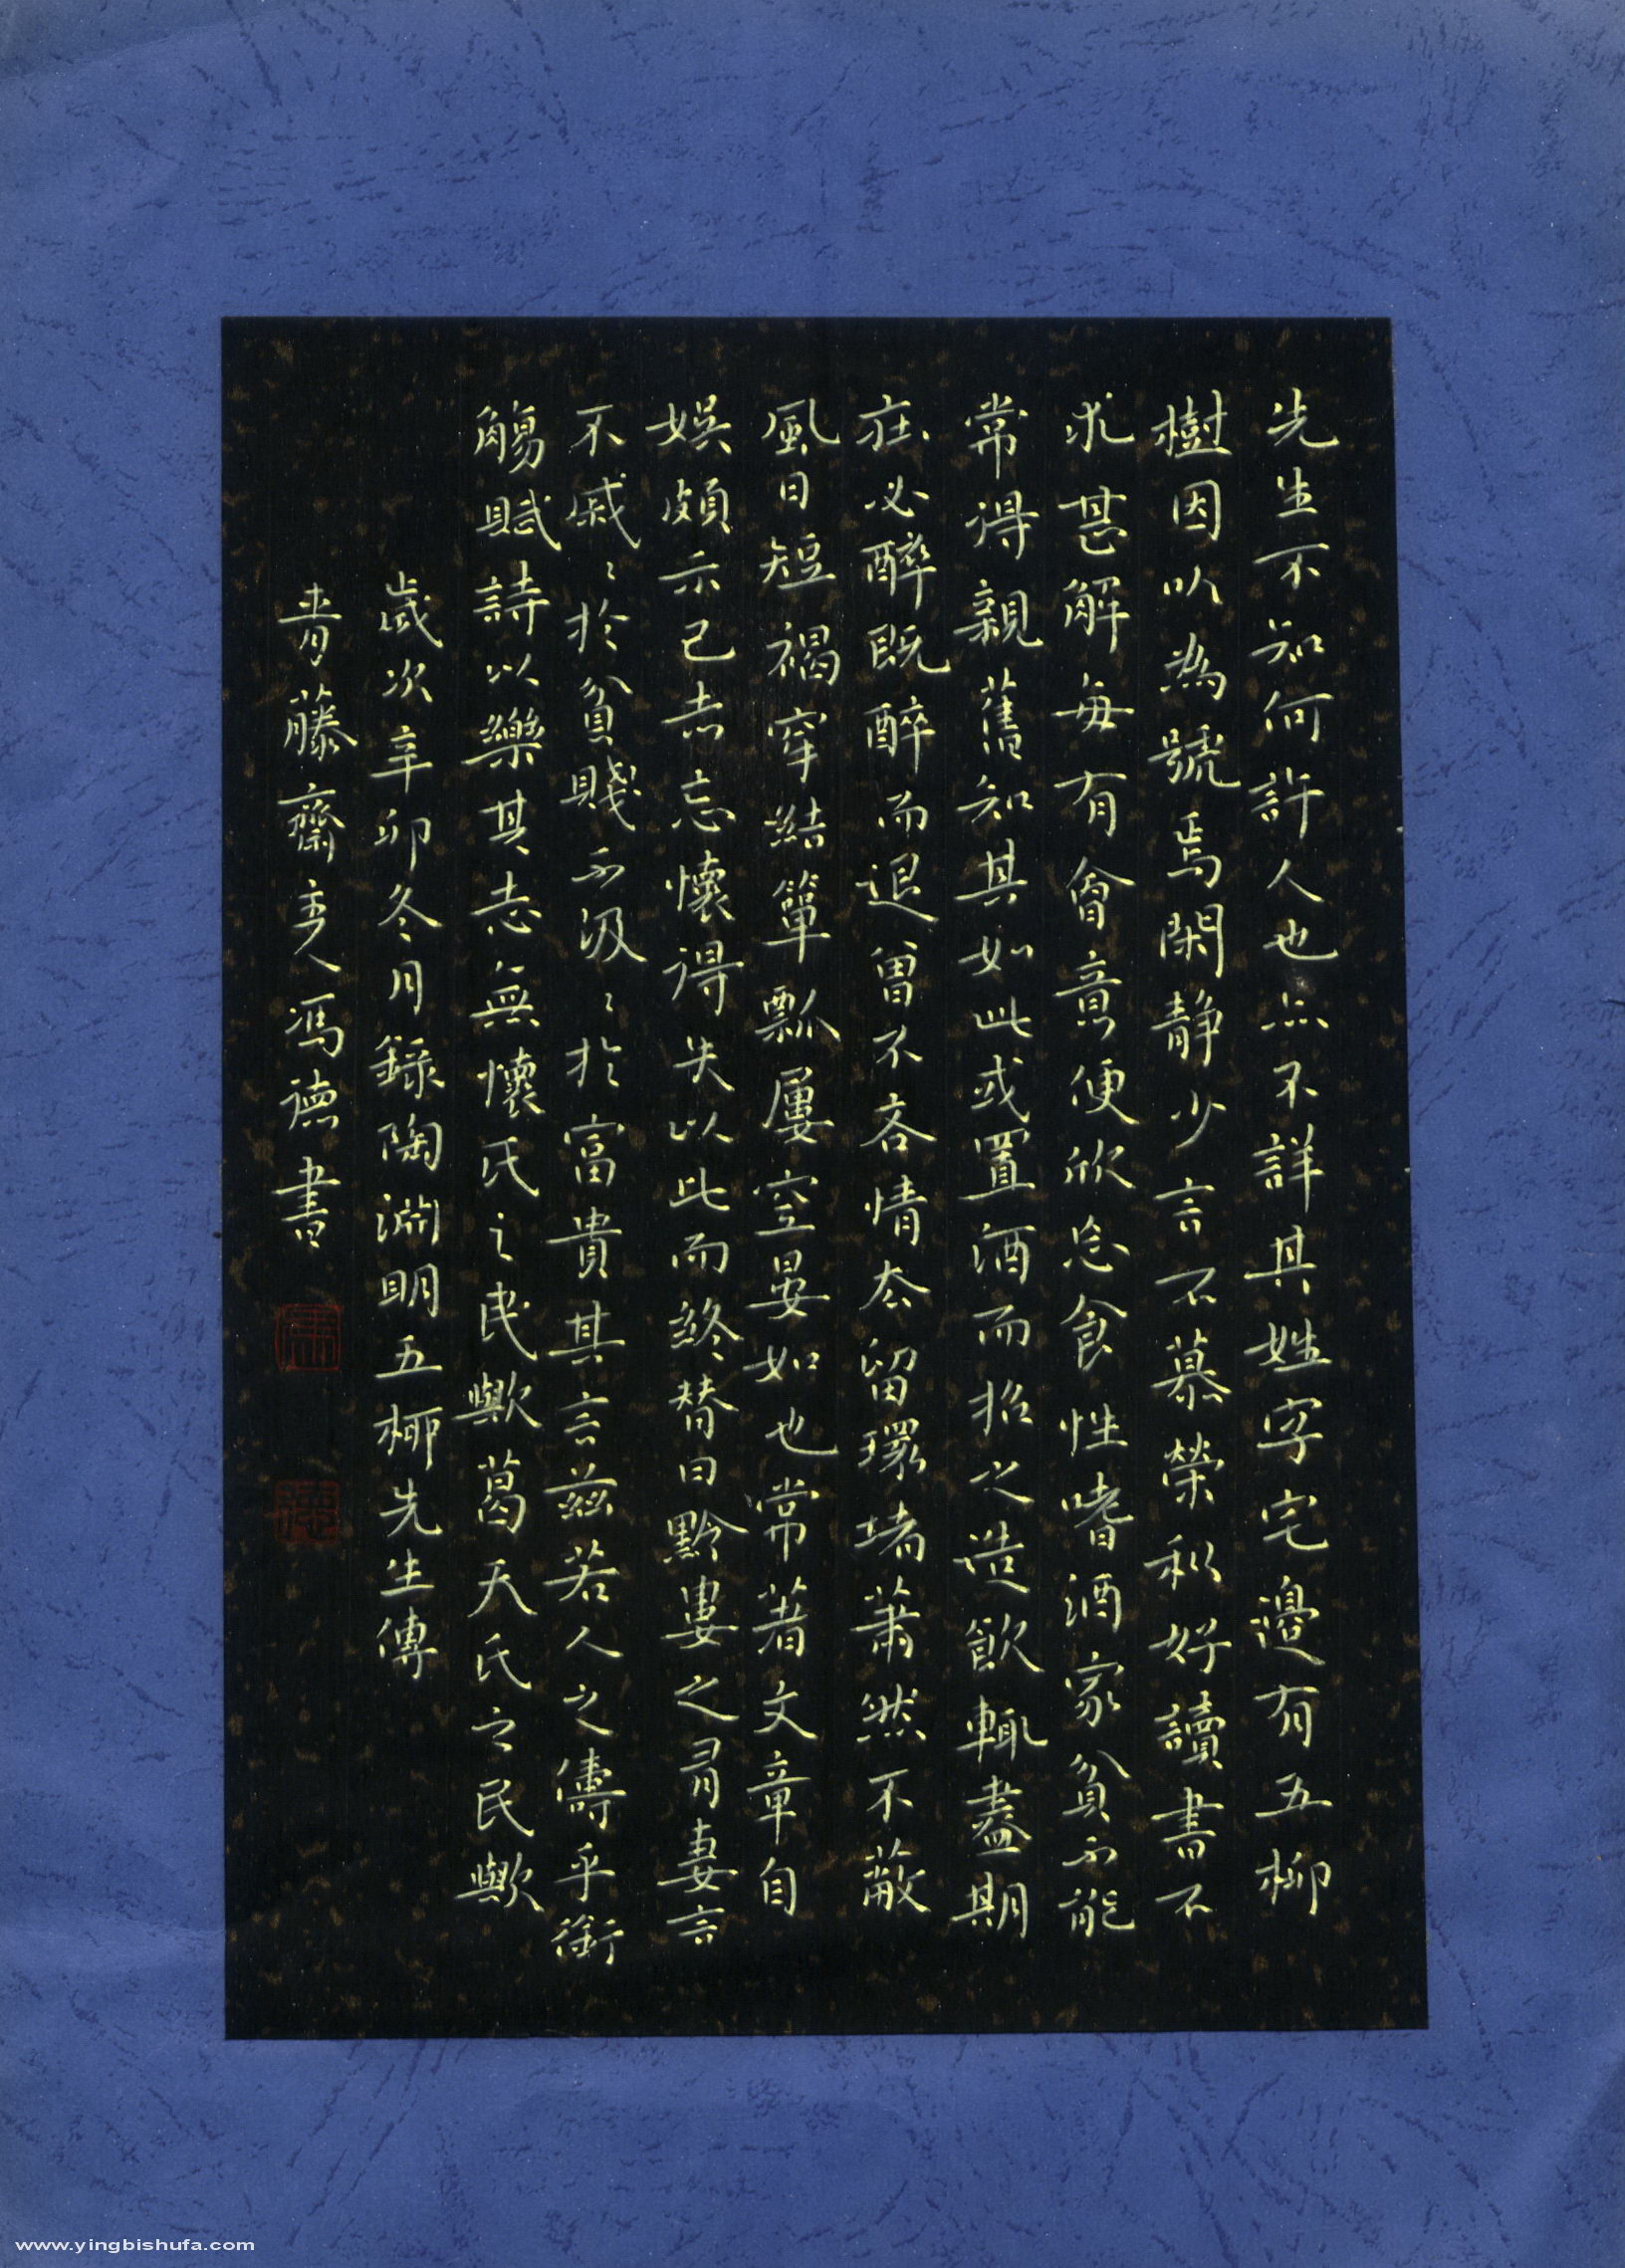 先生不知何許人也亦不詳其姓字宅邊有五柳
樹因以為號焉閑靜少言不慕榮利好讀書不
求甚解每有會意便欣忘食性嗜酒家貧不能
常得親舊知其如此或置酒而招之造飲輒盡期
在必醉既醉而退曾不吝情去留環堵蕭然不蔽
風日短褐穿結簞瓢屢空晏如也常著文章自
娛頗示己志忘懷得失以此而終替曰黔婁之有妻言
不戚〻於貧賤不汲〻於富貴其言茲若人之儔乎銜
觴賦詩以樂其志無懷氏之民歟葛天氏之民歟
歲次辛卯冬月錄陶淵明五柳先生傳
青藤齋主人馮德書
www.yingbishufa.com